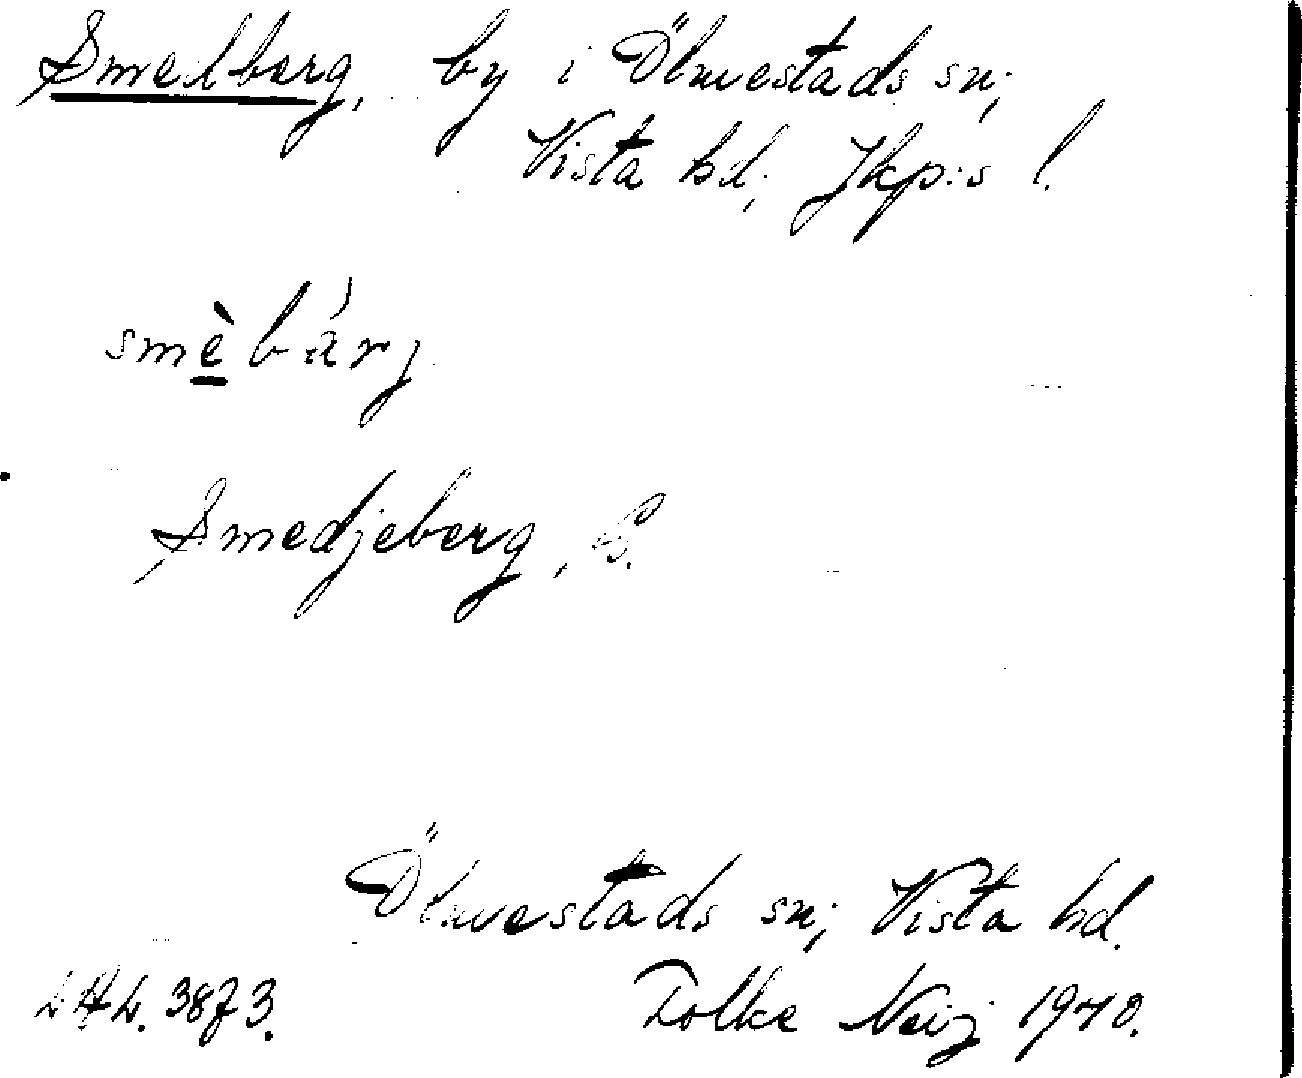 Smedberg, by i Ölmestads sn;
Vista hd; Jkp:s l.
smèbárj
Smedjeberg, B.
Ölmestads sn; Vista hd.
3873.
Folke Neij 1940.